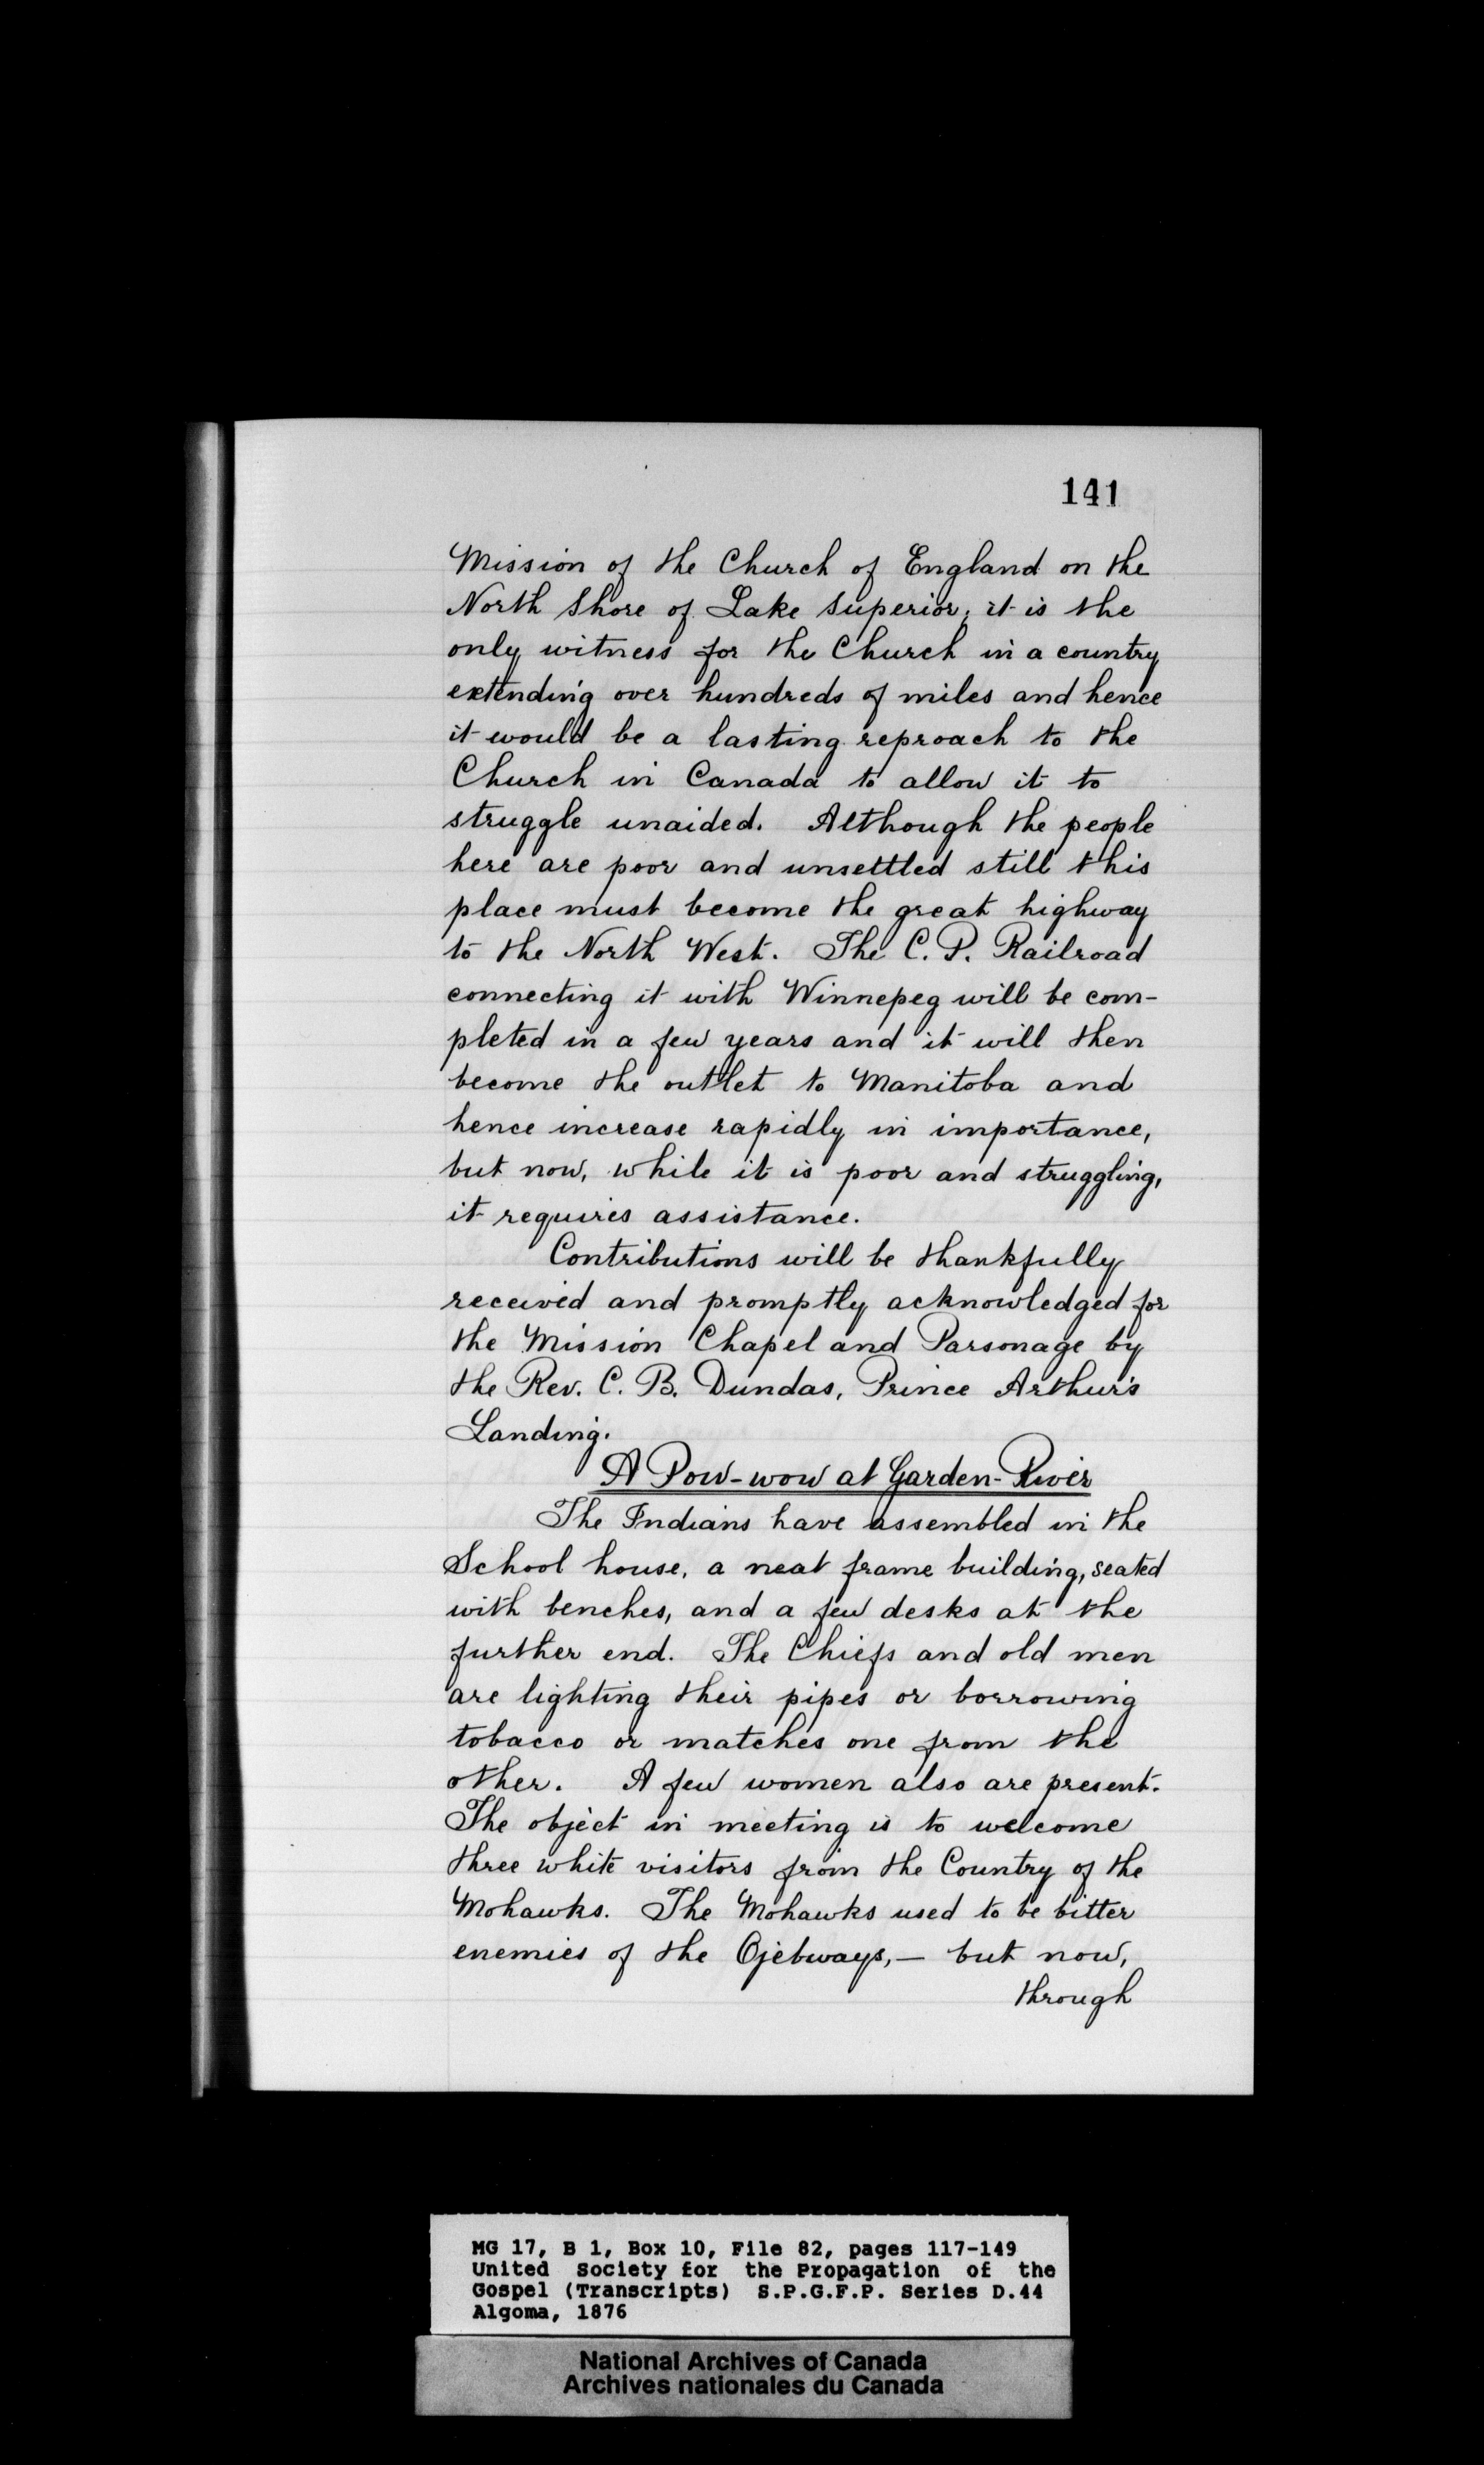 141
Mission of the Church of England on the
North Shore of Lake Superior; it is the
only witness for the Church in a country
extending over hundreds of miles and hence
it would be a lasting reproach to the
Church in Canada to allow it to
struggle unaided. Although the people
here are poor and unsettled still this
place must become the great highway
to the North West. The C. P. Railroad
connecting it with Winnepeg will be com-
pleted in a few years and it will then
become the outlet to Manitoba and
hence increase rapidly in importance,
but now, while it is poor and struggling,
it requires assistance.
Contributions will be thankfully
received and promptly acknowledged for
the Mission Chapel and Parsonage by
the Rev. C. B. Dundas, Prince Arthur's
Landing.
A Pow-wow at Garden-River
The Indians have assembled in the
School house, a neat frame building, seated
with benches, and a few desks at the
further end. The Chiefs and old men
are lighting their pipes or borrowing
tobacco or matches one from the
other. A few women also are present.
The object in meeting is to welcome
three white visitors from the Country of the
Mohawks. The Mohawks used to be bitter
enemies of the Ojebways,— but now,
through
MG 17, B 1, Box 10, File 82, pages 117-149
United Society for the Propagation of the
Gospel (Transcripts) S.P.G.F.P. Series D.44
Algoma, 1876
National Archives of Canada
Archives nationales du Canada